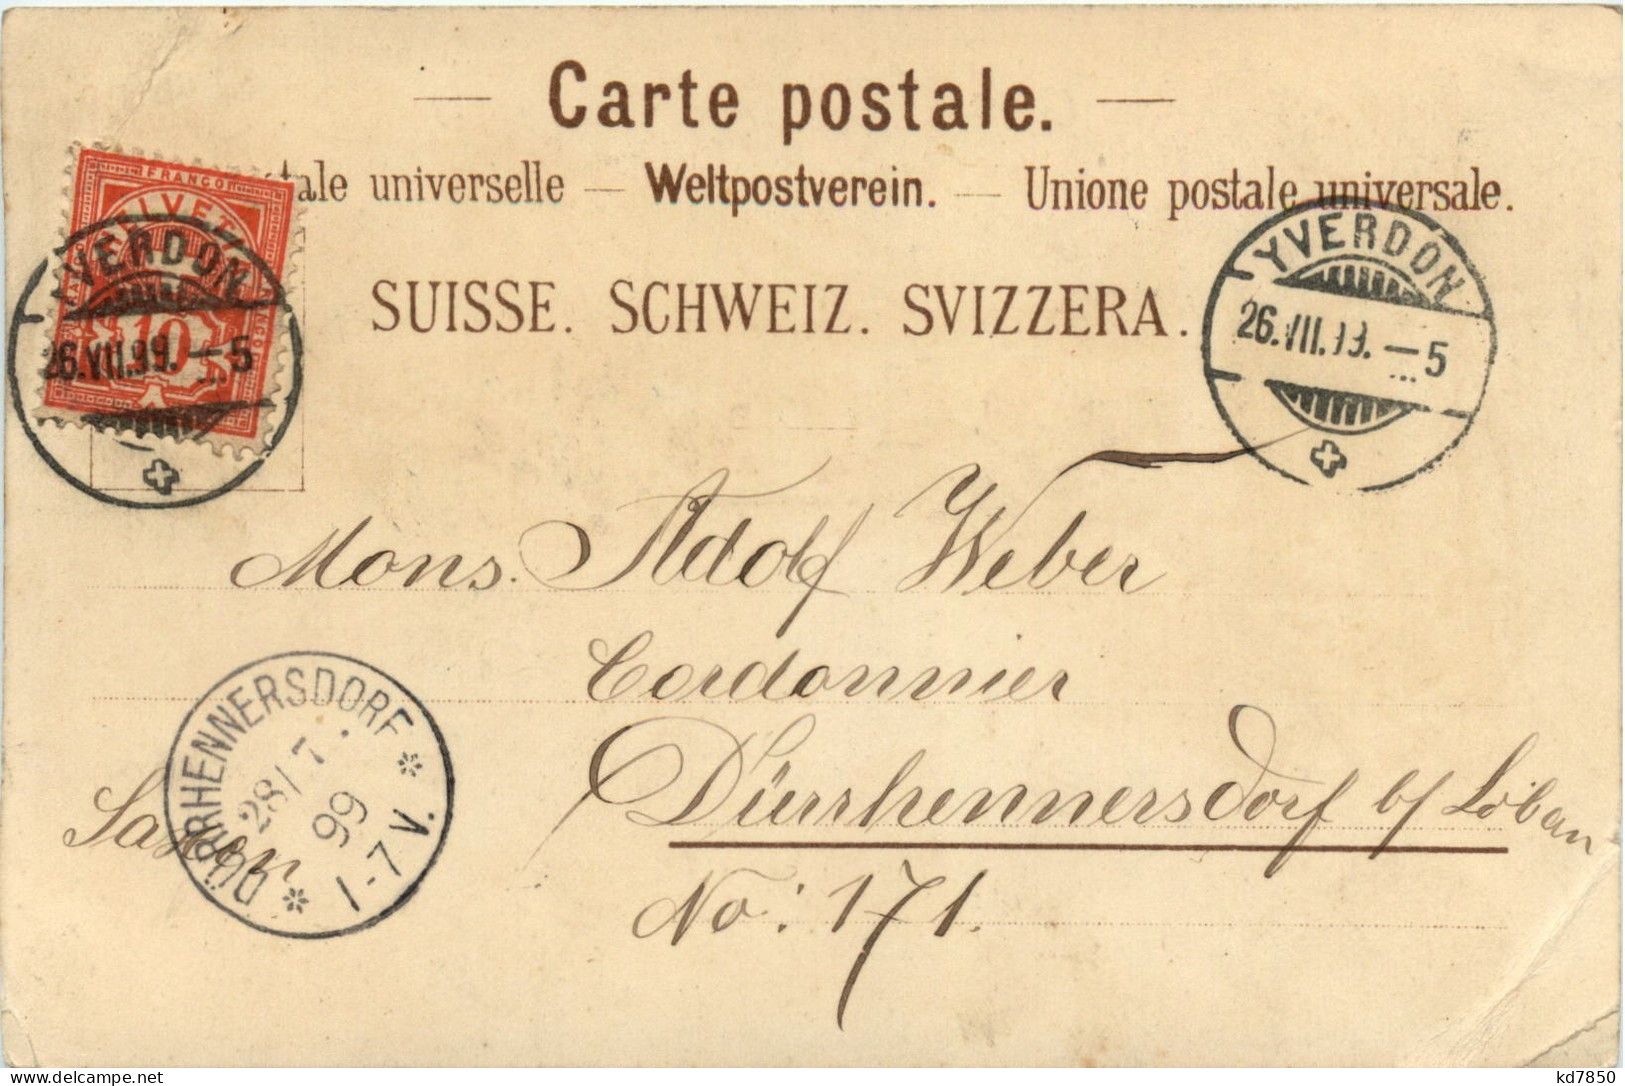 Carte postale.
tale universelle — Weltpostverein. — Unione postale universale.
SUISSE. SCHWEIZ. SVIZZERA.
FRANCO
HELVETIA
10
YVERDON
26.VII.99.–5
YVERDON
26.VII.99.–5
Mons. Adolf Weber
Cordonnier
Dürrhennersdorf b/ Löbau
Saxen
No: 171.
DÜRRHENNERSDORF
28/7.
99
1-7V.
kd7850